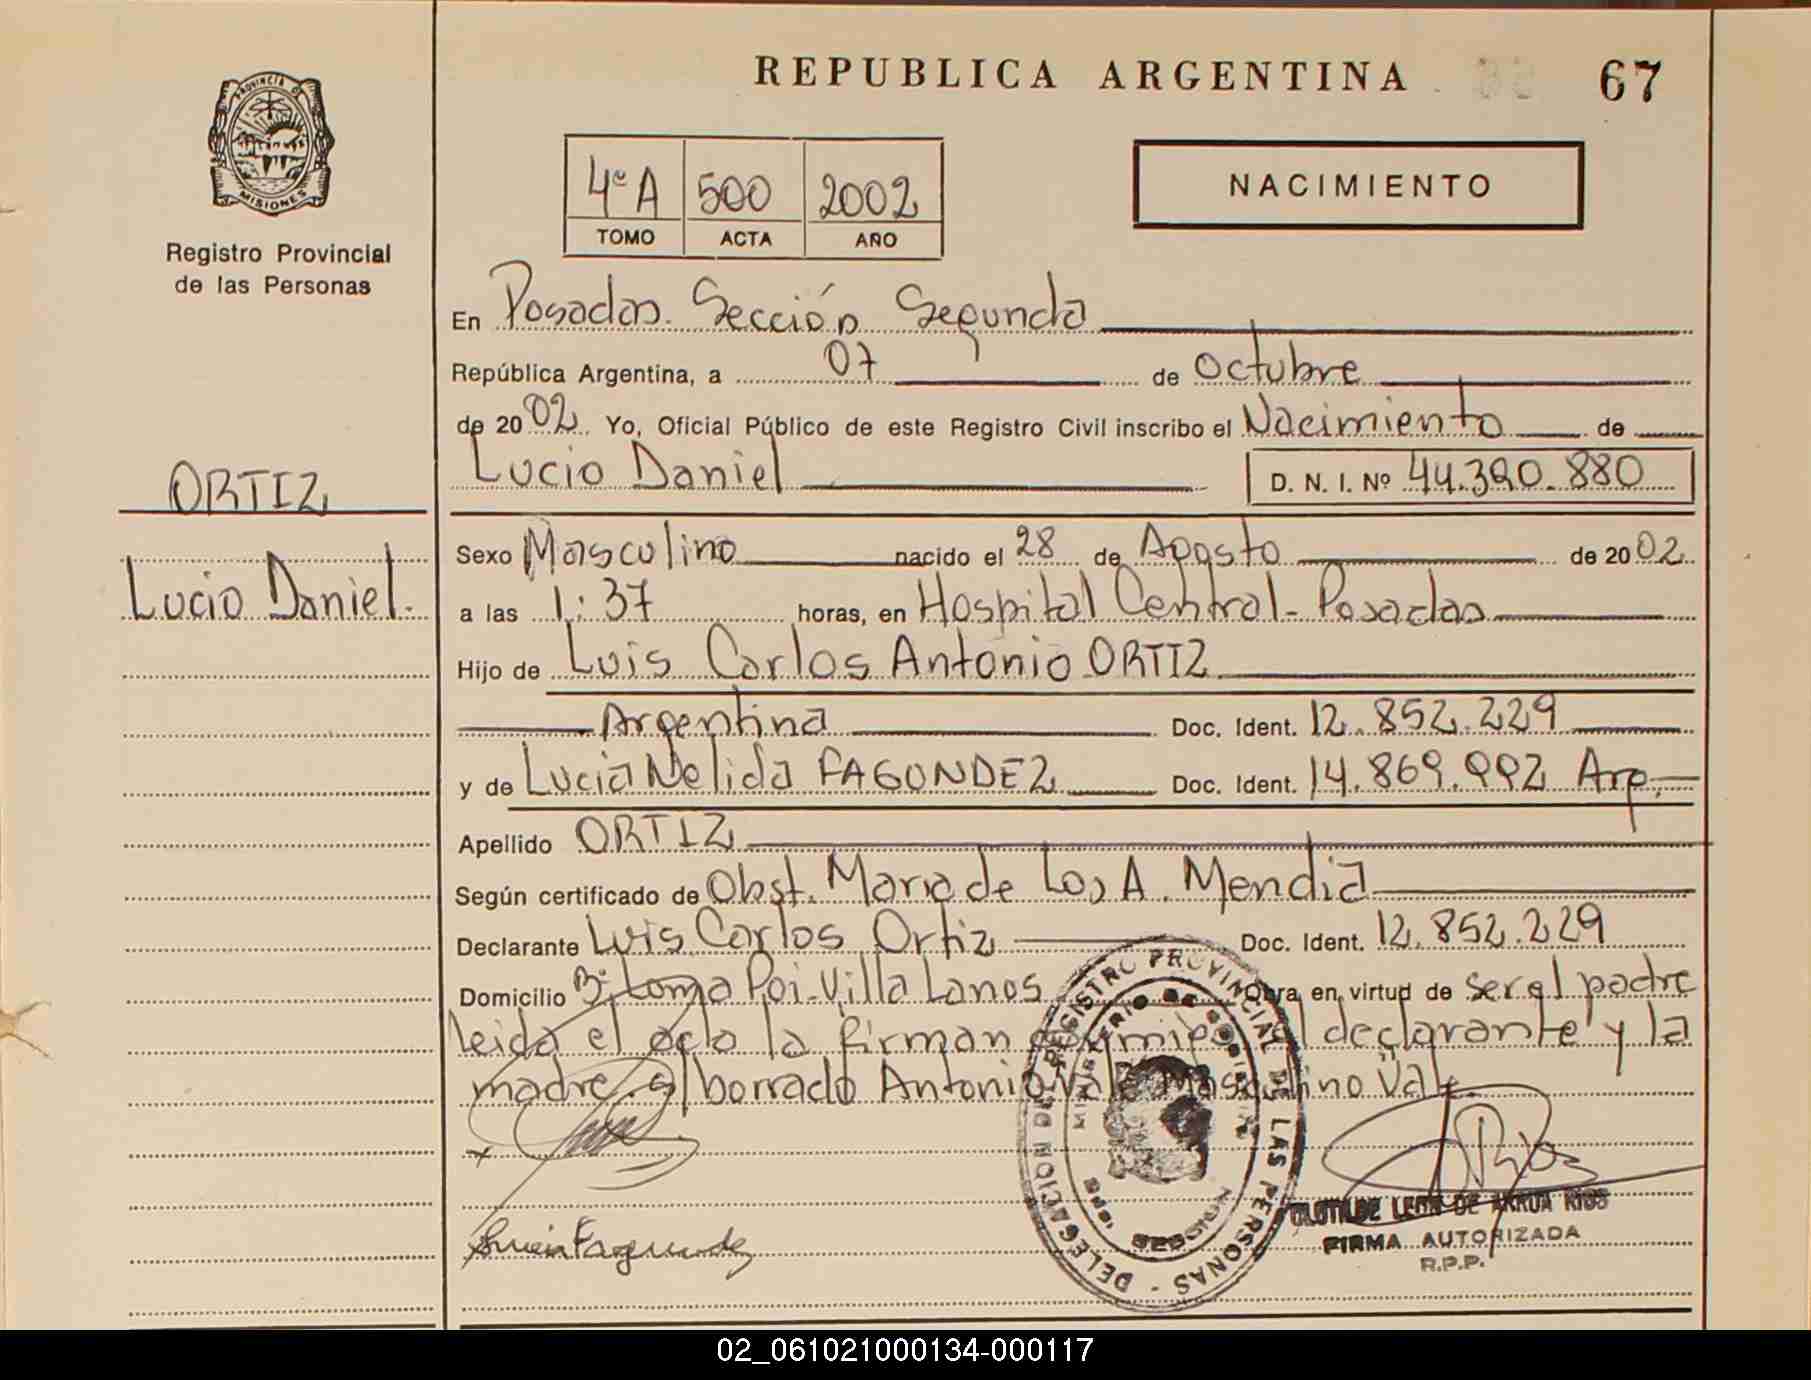 REPUBLICA ARGENTINA 67
PROVINCIA DE
MISIONES
Registro Provincial
de las Personas
4º A 500 2002
TOMO ACTA AÑO
NACIMIENTO
En Posadas Sección Segunda
República Argentina, a 07 de Octubre
de 2002 Yo, Oficial Público de este Registro Civil inscribo el Nacimiento de
Lucio Daniel D. N. I. Nº 44.390.880
ORTIZ
Lucio Daniel.
Sexo Masculino nacido el 28 de Agosto de 2002
a las 1:37 horas, en Hospital Central - Posadas
Hijo de Luis Carlos Antonio ORTIZ
Argentina Doc. Ident. 12.852.229
y de Lucia Nelida FAGUNDEZ Doc. Ident. 14.869.992 Arg.
Apellido ORTIZ
Según certificado de Obst. Maria de Los A. Mendia
Declarante Luis Carlos Ortiz Doc. Ident. 12.852.229
Domicilio Bº Loma Poi - Villa Lanos Obra en virtud de ser el padre
leida el acta la firman el declarante y la
madre s/borrado Antonio Vale Masculino Vale.
REGISTRO PROVINCIAL DE LAS PERSONAS - DELEGACION
MINISTERIO DE GOBIERNO
2da. SECCION
CLOTILDE LEON DE ARRUA RIOS
FIRMA AUTORIZADA
R.P.P.
02_061021000134-000117